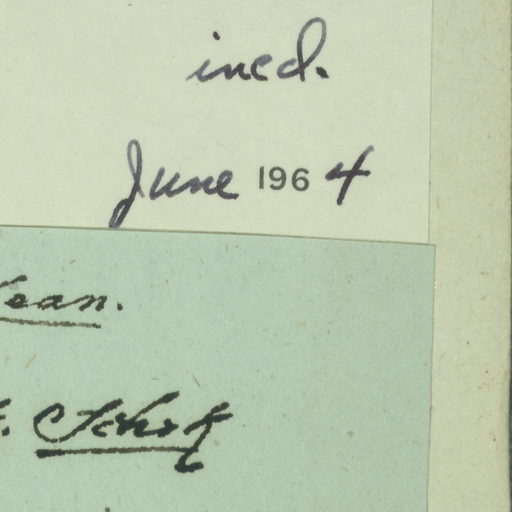 ined.
June 1964
ean.